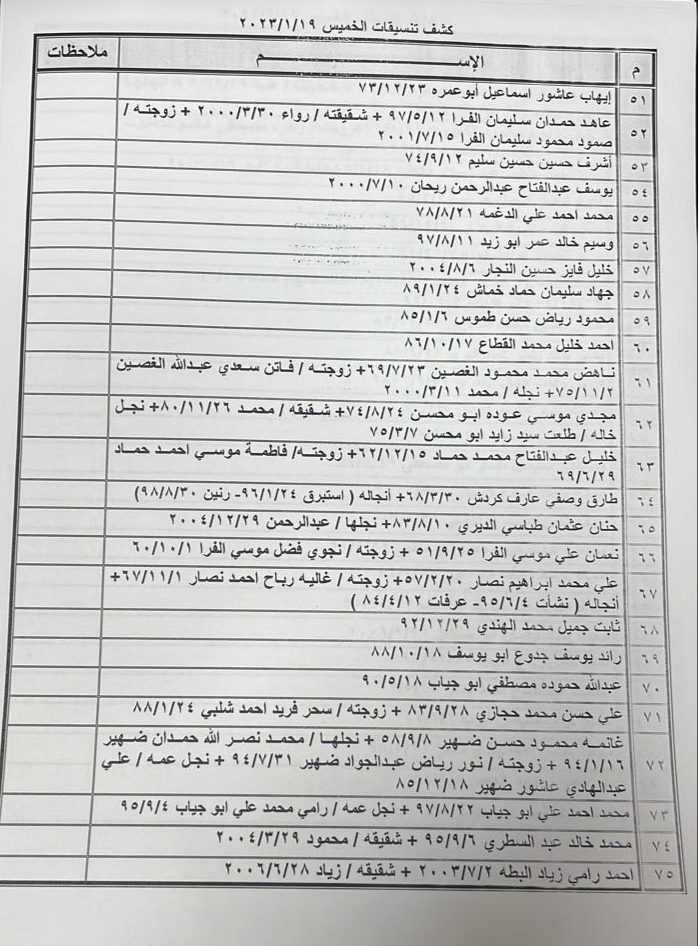 كشف تنسيقات الخميس ٢٠٢٣/١/١٩
م الإســـــــــــم ملاحظات
٥١ إيهاب عاشور اسماعيل أبوعمره ٧٣/١٢/٢٣
٥٢ عاهد حمدان سليمان الفرا ٩٧/٥/١٢ + شقيقته / رواء ٢٠٠٠/٣/٣٠ + زوجته /
صمود محمود سليمان الفرا ٢٠٠١/٧/١٥
٥٣ أشرف حسين حسين سليم ٧٤/٩/١٢
٥٤ يوسف عبدالفتاح عبدالرحمن ريحان ٢٠٠٠/٧/١٠
٥٥ محمد احمد علي الدغمه ٧٨/٨/٢١
٥٦ وسيم خالد عمر ابو زيد ٩٧/٨/١١
٥٧ خليل فايز حسين النجار ٢٠٠٤/٨/٦
٥٨ جهاد سليمان حماد خماش ٨٩/١/٢٤
٥٩ محمود رياض حسن طموس ٨٥/١/٦
٦٠ احمد خليل محمد القطاع ٨٦/١٠/١٧
٦١ ناهض محمد محمود الغصين ٦٩/٧/٢٣+ زوجته / فاتن سعدي عبدالله الغصين
٧٥/١١/٢+ نجله / محمد ٢٠٠٠/٣/١١
٦٢ مجدي موسي عوده ابو محسن ٧٤/٨/٢٤+ شقيقه / محمد ٨٠/١١/٢٦+ نجل
خاله / طلعت سيد زايد ابو محسن ٧٥/٣/٧
٦٣ خليل عبدالفتاح محمد حماد ٦٢/١٢/١٥+ زوجته/ فاطمة موسي احمد حماد
٦٩/٦/٢٩
٦٤ طارق وصفي عارف كردش ٦٨/٣/٣٠+ أنجاله ( استبرق ٩٦/١/٢٤- رنين ٩٨/٨/٣٠)
٦٥ حنان عثمان طباسي الديري ٨٣/٨/١٠+ نجلها / عبدالرحمن ٢٠٠٤/١٢/٢٩
٦٦ نعمان علي موسي الفرا ٥١/٩/٢٥ + زوجته / نجوي فضل موسي الفرا ٦٠/١٠/١
٦٧ علي محمد ابراهيم نصار ٥٧/٢/٢٠+ زوجته / غاليه رباح احمد نصار ٦٧/١١/١+
أنجاله ( نشأت ٩٥/٦/٤- عرفات ٨٤/٤/١٢ )
٦٨ ثابت جميل محمد الهندي ٩٢/١٢/٢٩
٦٩ رائد يوسف جدوع ابو يوسف ٨٨/١٠/١٨
٧٠ عبدالله حموده مصطفي ابو جياب ٩٠/٥/١٨
٧١ علي حسن محمد حجازي ٨٣/٩/٢٨ + زوجته / سحر فريد احمد شلبي ٨٨/١/٢٤
٧٢ غانمه محمود حسن ضهير ٥٨/٩/٨ + نجلها / محمد نصر الله حمدان ضهير
٩٤/١/١٦ + زوجته / نور رياض عبدالجواد ضهير ٩٤/٧/٣١ + نجل عمه / علي
عبدالهادي عاشور ضهير ٨٥/١٢/١٨
٧٣ محمد احمد علي ابو جياب ٩٧/٨/٢٢ + نجل عمه / رامي محمد علي ابو جياب ٩٥/٩/٤
٧٤ محمد خالد عبد السطري ٩٥/٩/٦ + شقيقه / محمود ٢٠٠٤/٣/٢٩
٧٥ احمد رامي زياد البطه ٢٠٠٣/٧/٢ + شقيقه / زياد ٢٠٠٦/٦/٢٨